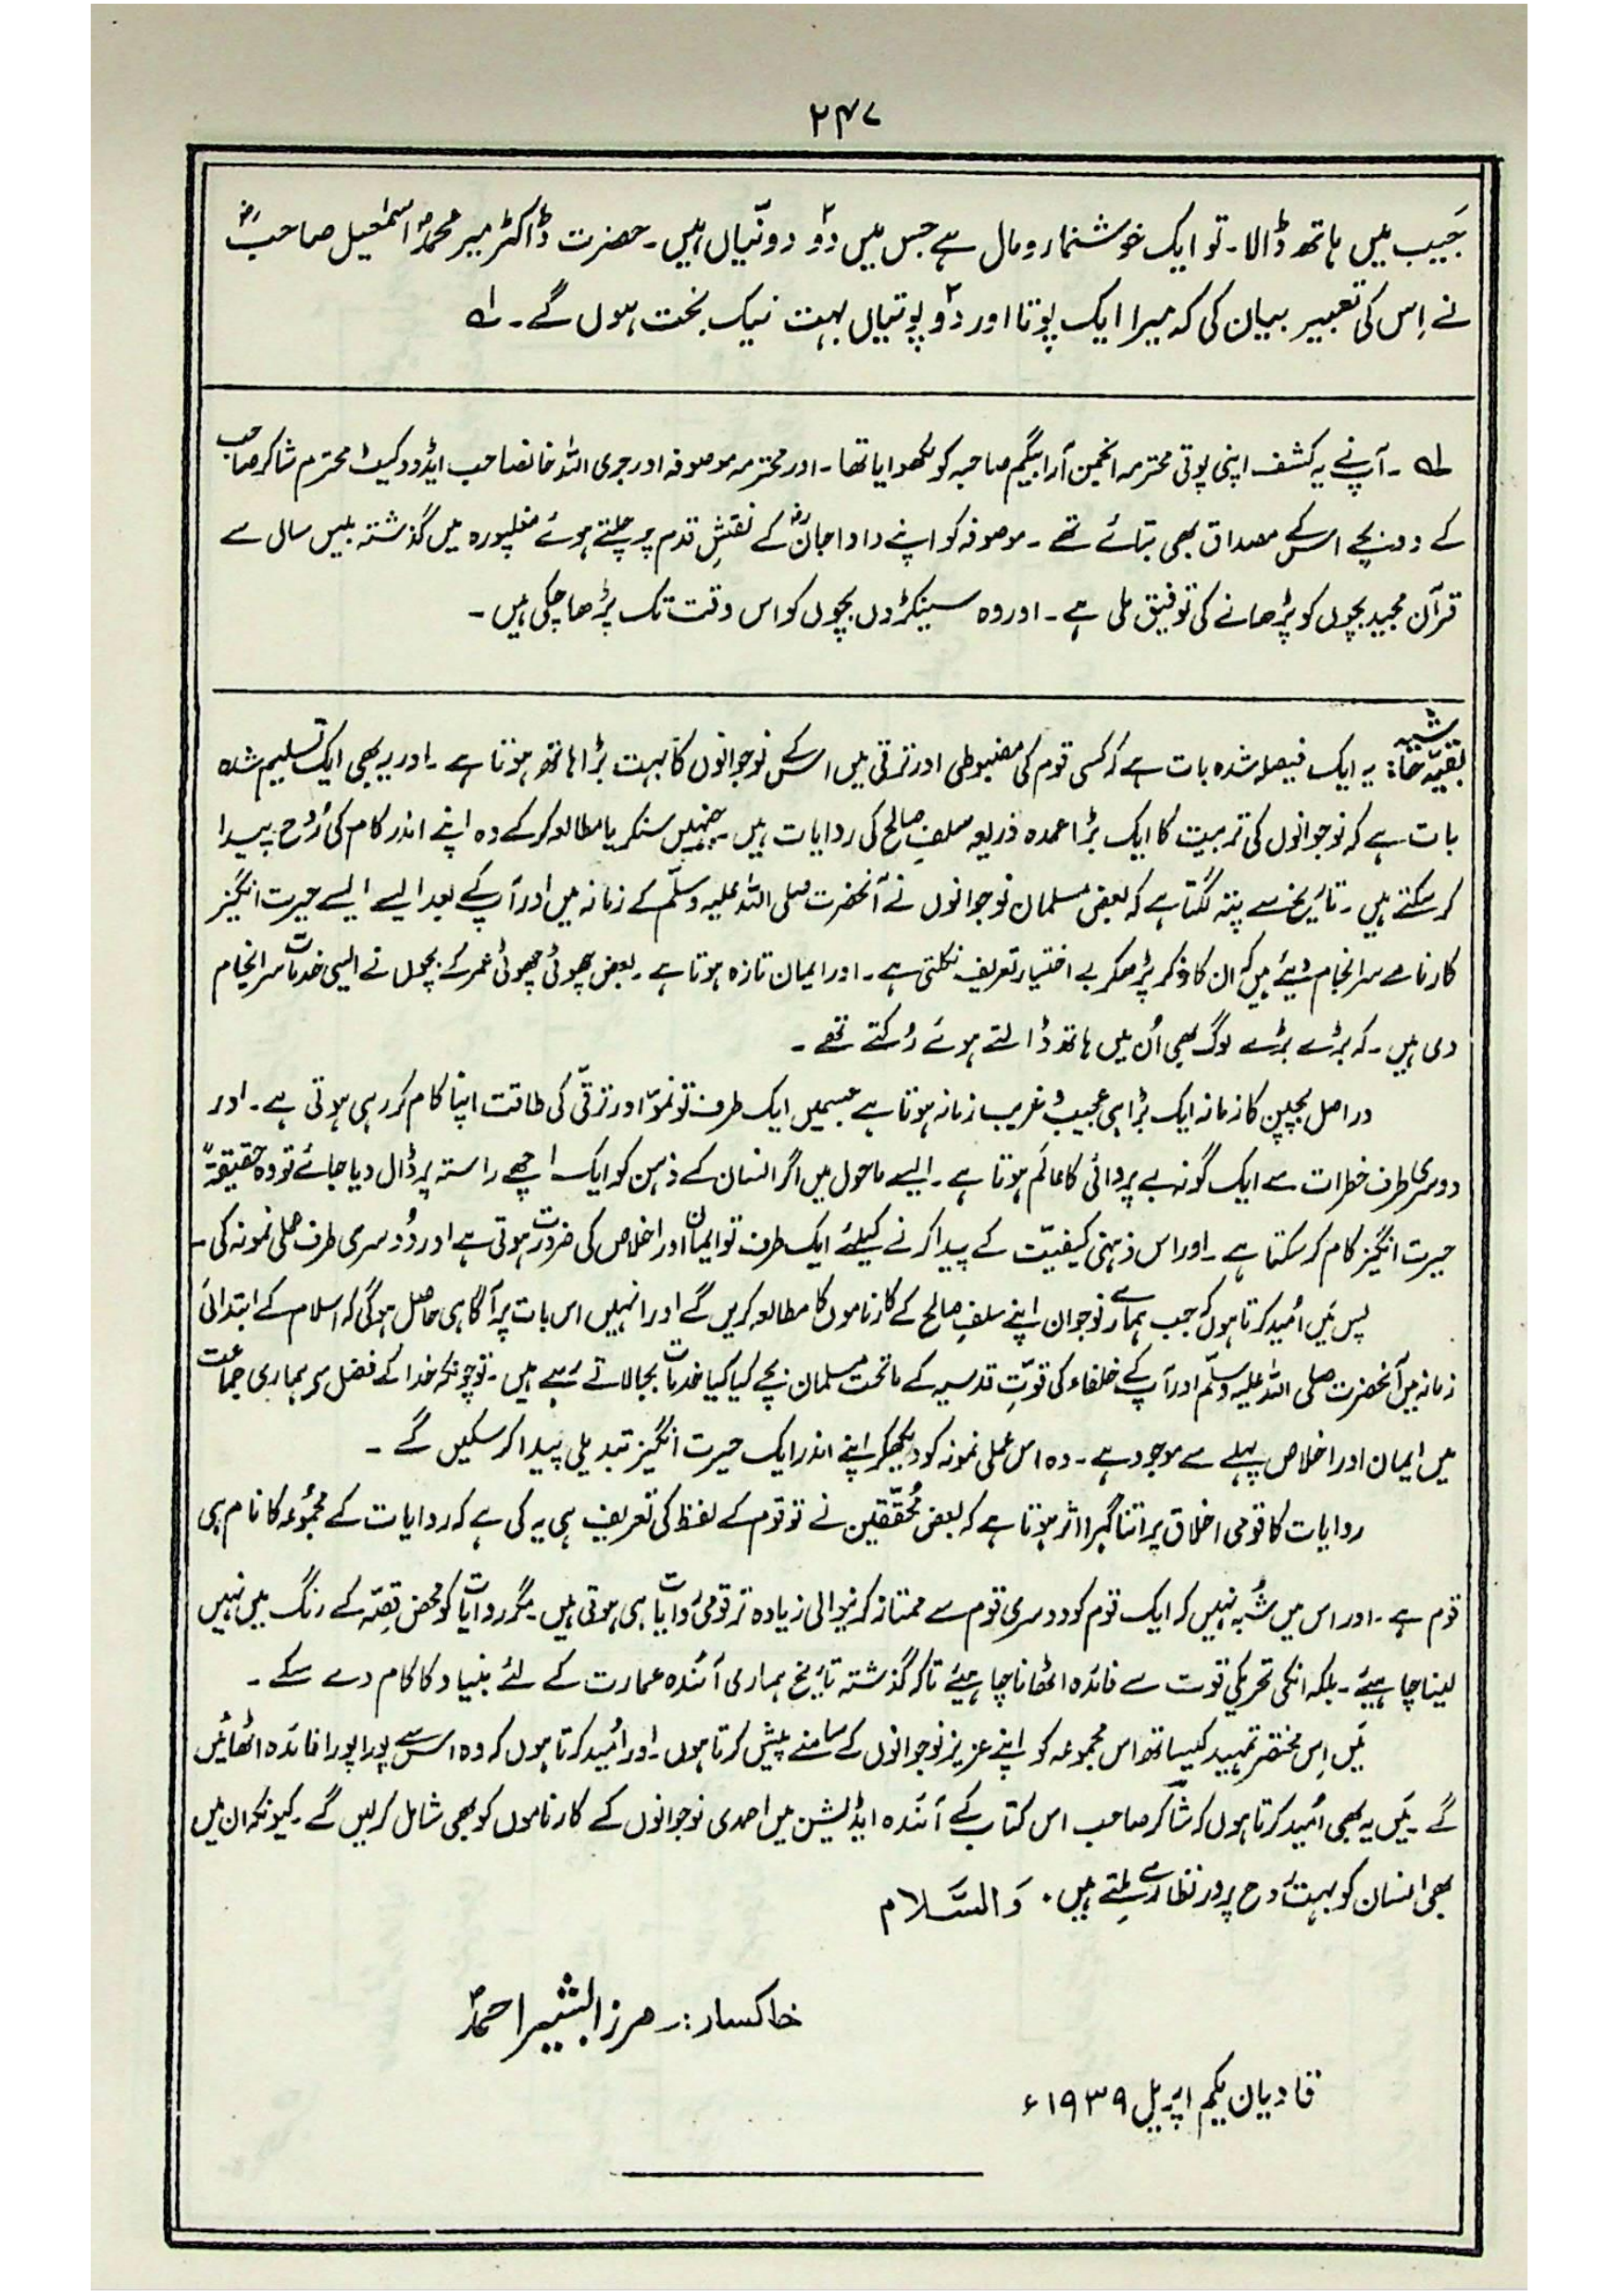 ۲۴۷
جَیب میں ہاتھ ڈالا۔ تو ایک خوشنما رومال ہے جس میں دوؔ دونّیاں ہیں۔ حضرت ڈاکٹر میر محمدؐ اسمٰعیل صاحبؓ
نے اِس کی تعبیر بیان کی کہ میرا ایک پوتا اور دوؔ پوتیاں بہت نیک بخت ہوں گے۔ لہ
لہ ۔ آپ نے یہ کشف اپنی پوتی محترمہ انجمن آرا بیگم صاحبہ کو لکھوایا تھا۔ اور محترمہ موصوفہ اور جری اللہ خانصاحب ایڈووکیٹ محترم شاکر صاحب
کے دو بچے اس کے مصداق بھی بتائے تھے ۔ موصوفہ کو اپنے دادا جانؓ کے نقشِ قدم پر چلتے ہوئے مغلپورہ میں گذشتہ بیس سال سے
قرآن مجید بچوں کو پڑھانے کی توفیق ملی ہے ۔ اور وہ سینکڑوں بچوں کو اس وقت تک پڑھا چکی ہیں ۔
بقیّہ حاشیہ: یہ ایک فیصلہ شدہ بات ہے کہ کسی قوم کی مضبوطی اور ترقی میں اس کے نوجوانوں کا بہت بڑا ہاتھ ہوتا ہے ۔ اور یہ بھی ایک تسلیم شدہ
بات ہے کہ نوجوانوں کی تربیت کا ایک بڑا عمدہ ذریعہ سلفِ صالح کی روایات ہیں ۔ جنہیں سنکر یا مطالعہ کر کے وہ اپنے اندر کام کی رُوح پیدا
کر سکتے ہیں ۔ تاریخ سے پتہ لگتا ہے کہ بعض مسلمان نوجوانوں نے آنحضرت صلی اللہ علیہ وسلّم کے زمانہ میں اور آپ کے بعد ایسے ایسے حیرت انگیز
کارنامے سرانجام دیئے ہیں کہ ان کا ذکر پڑھکر بے اختیار تعریف نکلتی ہے ۔ اور ایمان تازہ ہوتا ہے ۔ بعض چھوٹی چھوٹی عمر کے بچوں نے ایسی خدمات سرانجام
دی ہیں ۔ کہ بڑے بڑے لوگ بھی اُن میں ہاتھ ڈالتے ہوئے رُکتے تھے ۔
دراصل بچپن کا زمانہ ایک بڑا ہی عجیب و غریب زمانہ ہوتا ہے جسمیں ایک طرف تو نموّ اور ترقّی کی طاقت اپنا کام کر رہی ہوتی ہے ۔ اور
دوسری طرف خطرات سے ایک گونہ بے پروائی کا عالَم ہوتا ہے ۔ ایسے ماحول میں اگر انسان کے ذہن کو ایک اچھے راستہ پر ڈال دیا جائے تو وہ حقیقۃً
حیرت انگیز کام کر سکتا ہے ۔ اور اس ذہنی کیفیّت کے پیدا کرنے کیلئے ایک طرف تو ایمان اور اخلاص کی ضرورت ہوتی ہے اور دُوسری طرف عملی نمونہ کی ۔
پس مَیں اُمید کرتا ہوں کہ جب ہمارے نوجوان اپنے سلفِ صالح کے کارناموں کا مطالعہ کریں گے اور انہیں اس بات پر آگاہی حاصل ہوگی کہ اسلام کے ابتدائی
زمانہ میں آنحضرت صلی اللہ علیہ وسلّم اور آپ کے خلفاء کی قوّتِ قدسیہ کے ماتحت مسلمان بچے کیا کیا خدمات بجا لاتے رہے ہیں ۔ تو چونکہ خدا کے فضل سے ہماری جماعت
میں ایمان اور اخلاص پہلے سے موجود ہے ۔ وہ اس عملی نمونہ کو دیکھکر اپنے اندر ایک حیرت انگیز تبدیلی پیدا کر سکیں گے ۔
روایات کا قومی اخلاق پر اتنا گہرا اثر ہوتا ہے کہ بعض مُحقّقین نے تو قوم کے لفظ کی تعریف ہی یہ کی ہے کہ روایات کے مجمُوعہ کا نام ہی
قوم ہے ۔ اور اس میں شُبہ نہیں کہ ایک قوم کو دوسری قوم سے ممتاز کرنیوالی زیادہ تر قومی روایات ہی ہوتی ہیں ۔ مگر روایات کو محض قصّہ کے رنگ میں نہیں
لینا چاہیئے ۔ بلکہ انکی تحریکی قوت سے فائدہ اٹھانا چاہیئے تاکہ گذشتہ تاریخ ہماری آئندہ عمارت کے لئے بنیاد کا کام دے سکے ۔
مَیں اِس مختصر تمہید کیساتھ اس مجموعہ کو اپنے عزیز نوجوانوں کے سامنے پیش کرتا ہوں ۔ اور اُمید کرتا ہوں کہ وہ اس سے پورا پورا فائدہ اٹھائیں
گے ۔ مَیں یہ بھی اُمید کرتا ہوں کہ شاکر صاحب اس کتاب کے آئندہ ایڈیشن میں احمدی نوجوانوں کے کارناموں کو بھی شامل کر لیں گے ۔ کیونکہ ان میں
بھی انسان کو بہت رُوح پرور نظارے ملتے ہیں ۔ وَالسَّلام
خاکسار:۔ مرزا بشیر احمدؐ
قادیان یکم اپریل ۱۹۳۹ء